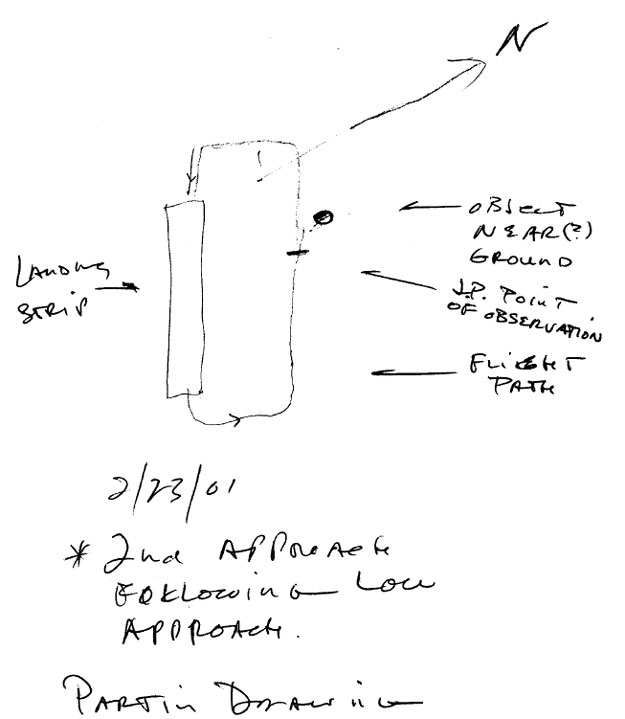 N
OBJECT
NEAR(?)
GROUND
LANDING
STRIP
J.P. POINT
OF OBSERVATION
FLIGHT
PATH
2/23/01
* 2nd APPROACH
FOLLOWING LOW
APPROACH.
PARTIN DRAWING